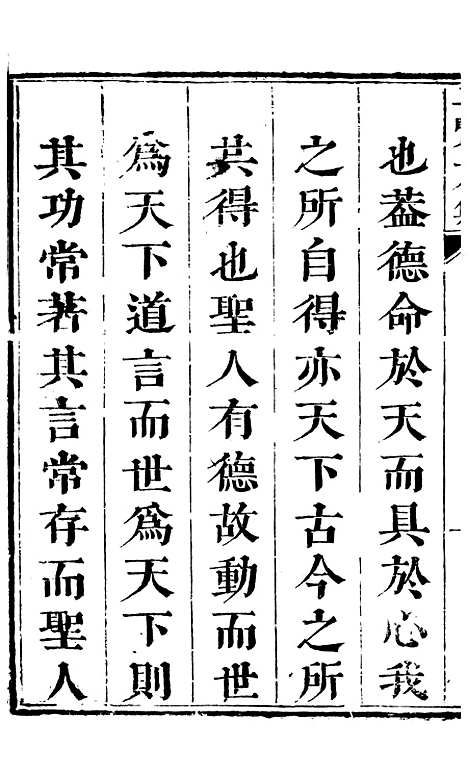 也葢德命於天而具於心我
之所自得亦天下古今之所
共得也聖人有德故動而世
爲天下道言而世爲天下則
其功常著其言常存而聖人